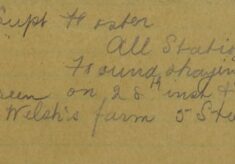 Supt Foster
All Statio
Found straying
een on 28th inst &
Welsh's farm 5 Ste